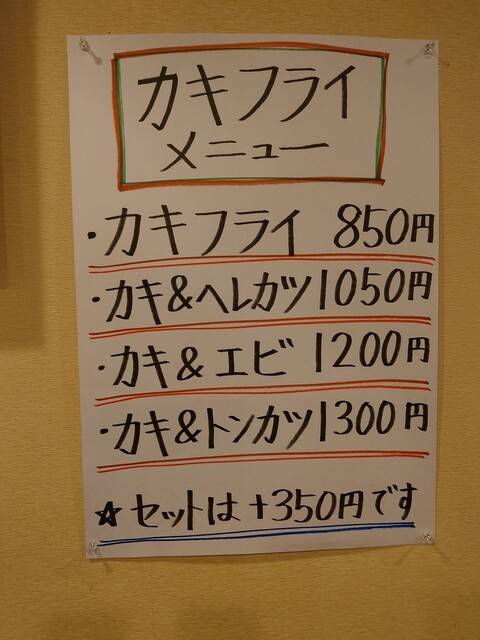 カキフライ
メニュー
・カキフライ 850円
・カキ&ヘレカツ 1050円
・カキ&エビ 1200円
・カキ&トンカツ 1300円
☆セットは+350円です